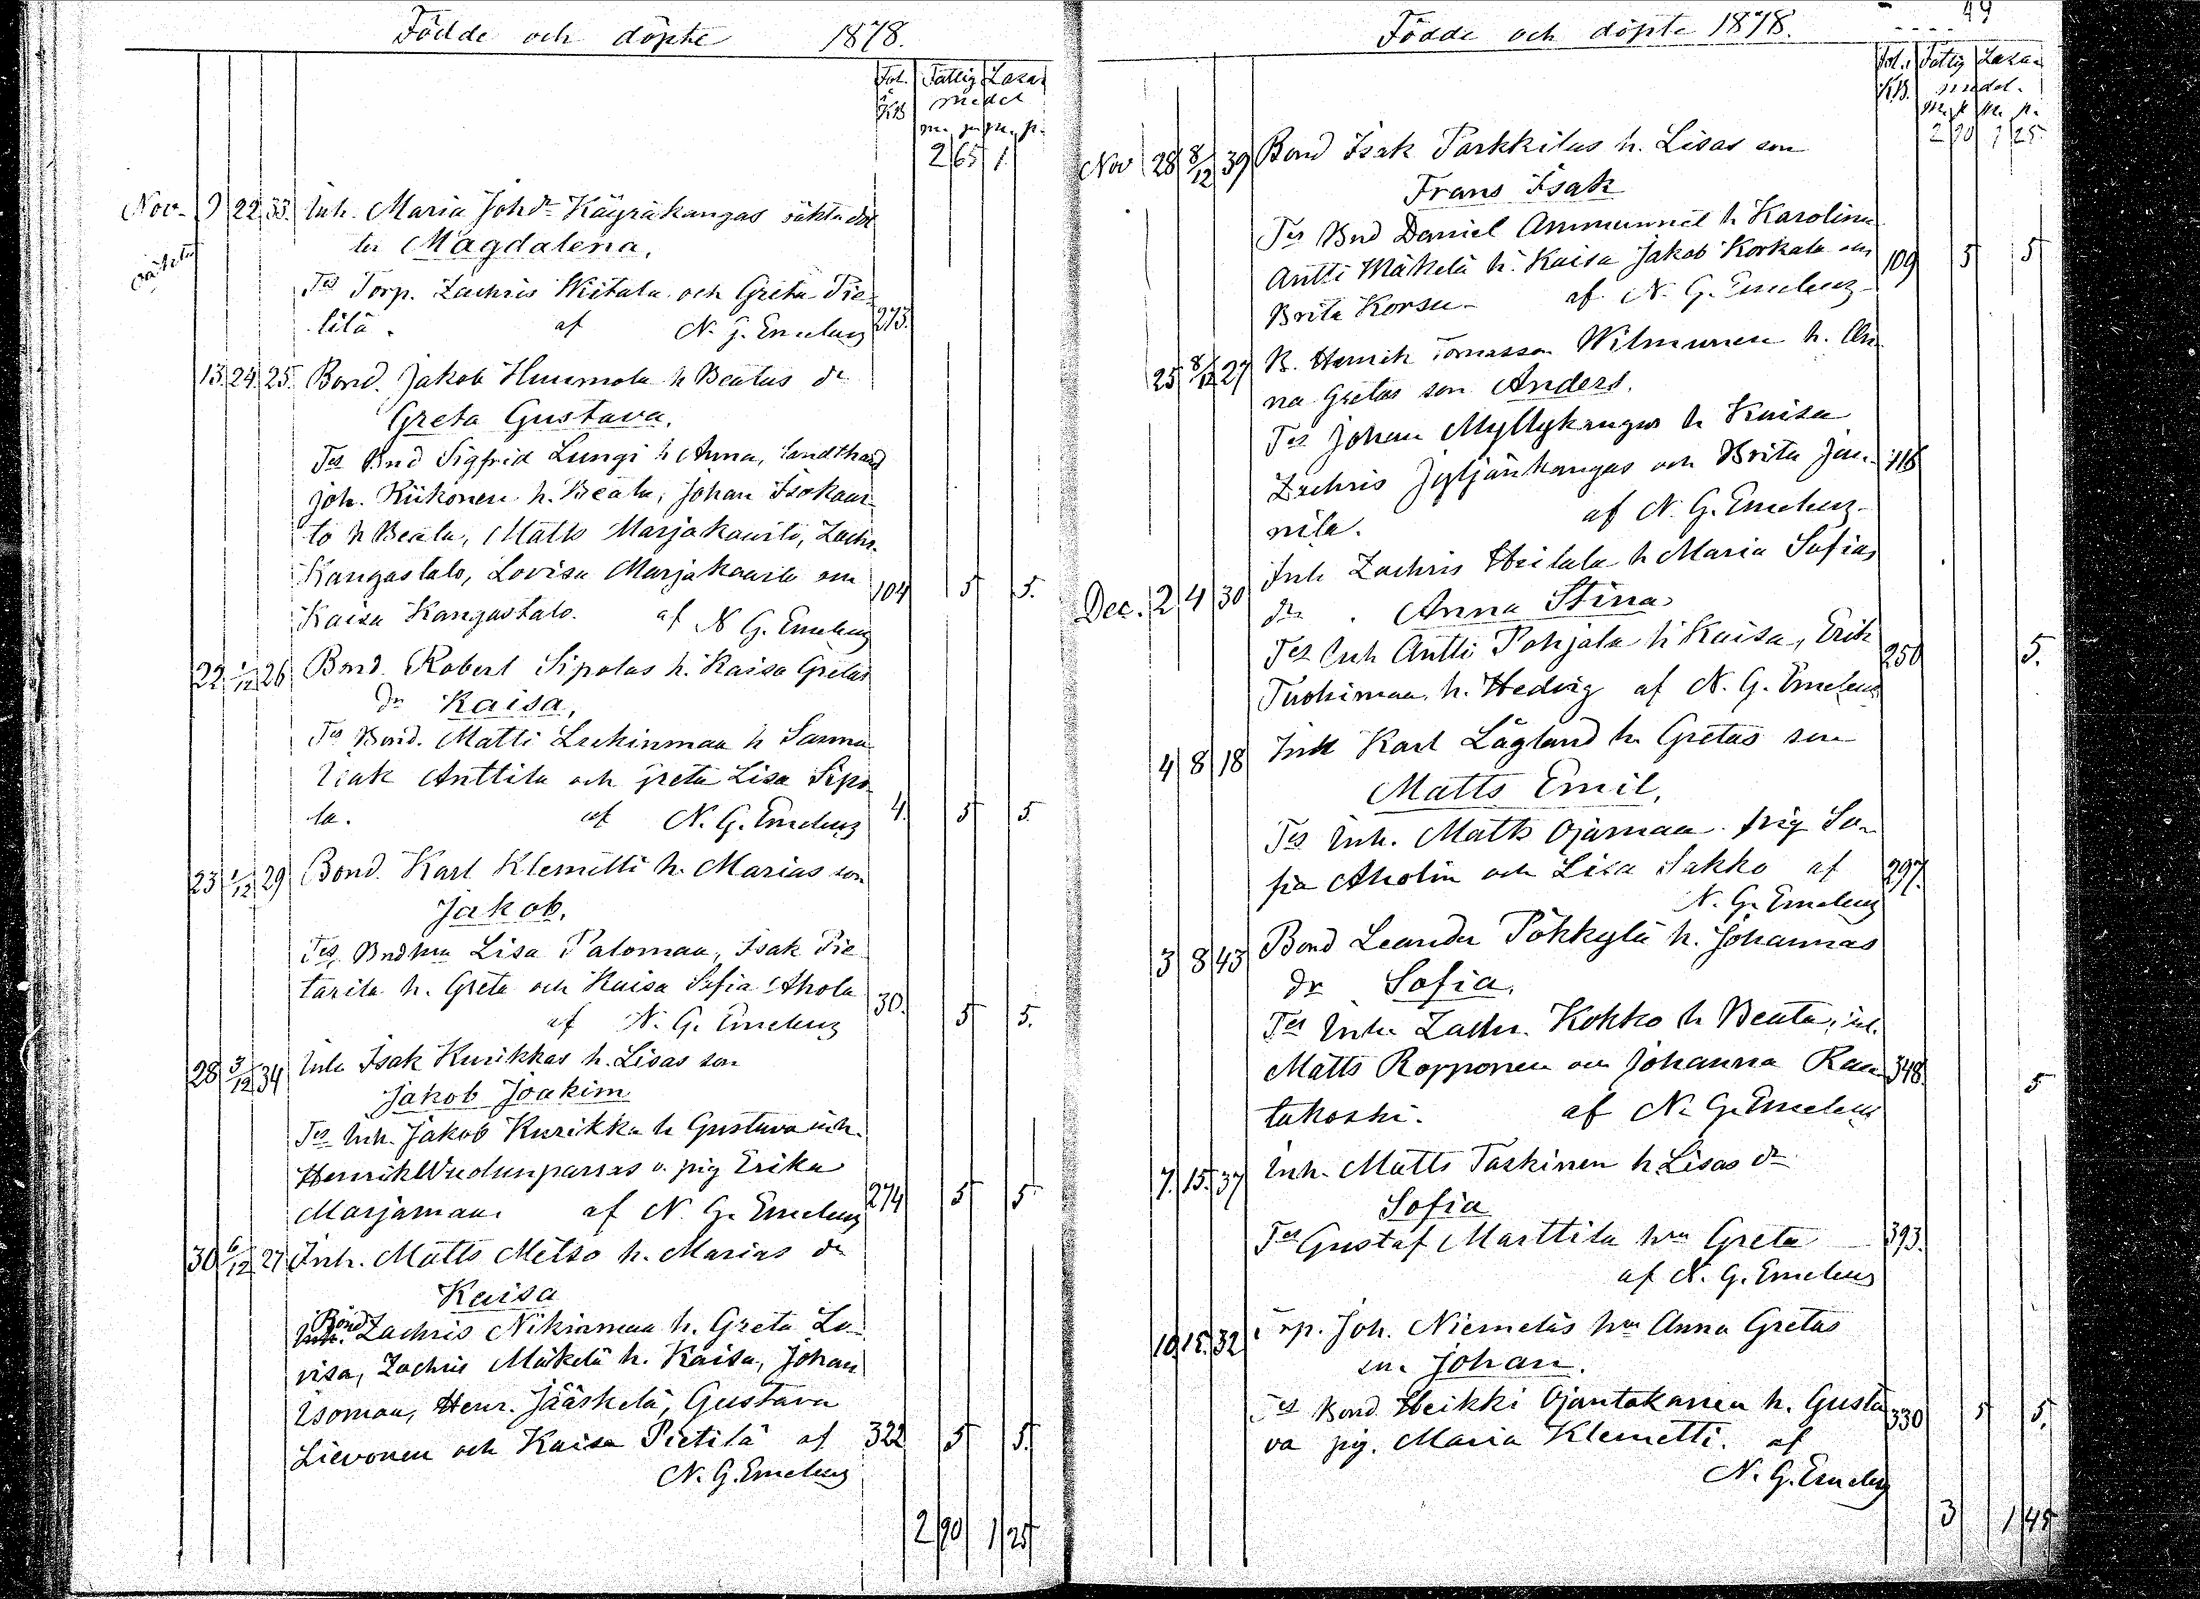 Födde och döpte 1878.
Fol. Fattig Lazar
KB medel
m. p. m. p.
2 65 1
Nov. 9 22 33. Inh. Maria Johdr Käyräkangas oäkta dot
oäkta
ter Magdalena.
Tes Torp. Zachris Witala och Greta Pie-
tilä. af N. G. Emeleus 273.
13. 24. 25. Bond. Jakob Huumola h Beatas dr
Greta Gustava.
Tes Bnd Sigfrid Lungi h Anna, landthand
Joh. Kiikonen h. Beata, Johan Isokaar-
to h Beata, Matts Marjakaarto, Zachr.
Kangastalo, Lovisa Marjakaarto och
Kaisa Kangastalo. af N G. Emeleus 104 5 5.
22 1/12 26 Bond. Robert Sipolas h. Kaisa Gretas
dr Kaisa,
Tes Bond. Matti Leskinmaa h Sanna
Isak Anttila och Greta Lisa Sipo-
la. af N. G. Emeleus 4. 5 5.
23 1/12 29 Bond. Karl Klemetti h. Marias son
Jakob.
Tes, Bndhu Lisa Palomaa, Isak Pie-
tarila h. Greta och Kaisa Sofia Ahola
af N. G. Emeleus 30. 5 5.
28 3/12 34 Inh Isak Kurikkas h. Lisas son
Jakob Joakim
Tes Inh. Jakob Kurikka h Gustava inh.
Henrik Wuolunparras o. pig Erika
Marjamaa. af N. G. Emeleus 274 5 5
30 6/12 27 Inh. Matts Metso h. Marias dr
Kaisa
Bond
Inh. Zachris Nikinmaa h. Greta Lo-
visa, Zachris Mäkelä h. Kaisa, Johan
Isomaa, Henr. Jääskelä, Gustava
Lievonen och Kaisa Pietilä af 322 5 5.
N. G. Emeleus
2 90 1 25
Födde och döpte 1878. 49
Fol. i Fattig Lazar
K.B. medel.
m. p. m. p.
2 90 1 25.
Nov 28 8/12 39 Bond Isak Parkkilas h. Lisas son
Frans Isak
Tes Bnd Daniel Ammunnet h Karolina
Antti Mäkelä h. Kaisa Jakob Korkala och
Brita Korsu. af N. G. Emeleus 109 5 5
25 8/12 27 B. Henrik Tomasson Wilmunen h. An-
na Gretas son Anders.
Tes Johan Myllykangas h Kaisa
Zachris Jyljänkangas och Brita Jun- 116
nila. af N. G. Emeleus
Dec. 2 4 30 Inh Zachris Heilala h Maria Sofias
dr. Anna Stina
Tes Inh Antti Pohjala h Kaisa, Erik
Tuohimaa h. Hedvig af N. G. Emeleus 250 5.
4 8 18 Inh Karl Lågland h. Gretas son
Matts Emil.
Tes Inh. Matts Ojamaa pig So-
fia Aholin och Lisa Sakko af 297.
N. G. Emeleus
3 8 43 Bond Leander Pökkylä h. Johannas
dr Sofia.
Tes Inh. Zachr. Kokko h Beata, inh.
Matts Ropponen och Johanna Rau- 348.
takoski. af N. G. Emeleus 5
7. 15. 37 Inh. Matts Taskinen h Lisas dr
Sofia
Tes Gustaf Marttila hu Greta 393.
af N. G. Emeleus
10. 15. 32 Torp. Joh. Niemeläs hu Anna Gretas
son Johan.
Tes Bond Heikki Ojantakanen h. Gusta 330 5 5.
va pig. Maria Klemetti. af
N. G. Emeleus
3 1 45